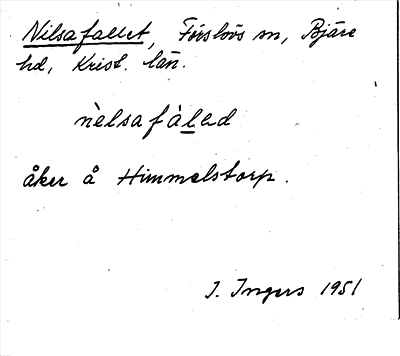 Nilsafallet, Förslövs sn, Bjäre
hd, Krist. län.
nèlsafàlad
åker å Himmelstorp.
I. Ingers 1951